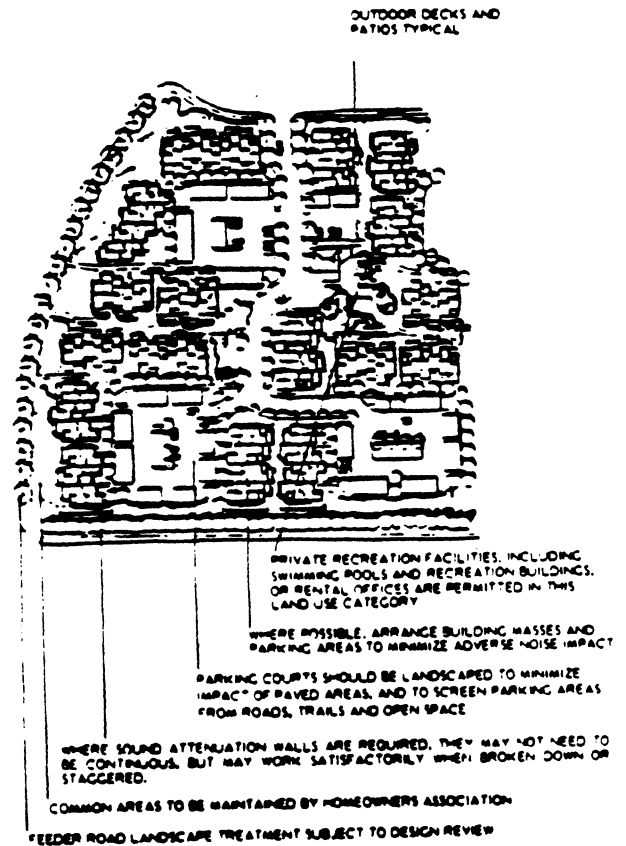 OUTDOOR DECKS AND
PATIOS TYPICAL
PRIVATE RECREATION FACILITIES, INCLUDING
SWIMMING POOLS AND RECREATION BUILDINGS,
OR RENTAL OFFICES ARE PERMITTED IN THIS
LAND USE CATEGORY
WHERE POSSIBLE, ARRANGE BUILDING MASSES AND
PARKING AREAS TO MINIMIZE ADVERSE NOISE IMPACT
PARKING COURTS SHOULD BE LANDSCAPED TO MINIMIZE
IMPACT OF PAVED AREAS, AND TO SCREEN PARKING AREAS
FROM ROADS, TRAILS AND OPEN SPACE
WHERE SOUND ATTENUATION WALLS ARE REQUIRED, THEY MAY NOT NEED TO
BE CONTINUOUS, BUT MAY WORK SATISFACTORILY WHEN BROKEN DOWN OR
STAGGERED.
COMMON AREAS TO BE MAINTAINED BY HOMEOWNERS ASSOCIATION
FEEDER ROAD LANDSCAPE TREATMENT SUBJECT TO DESIGN REVIEW